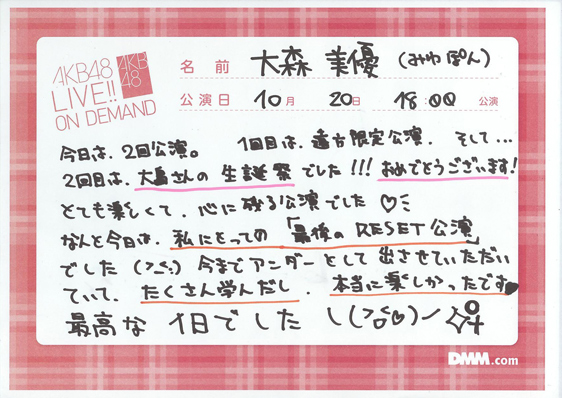 AKB48
LIVE!!
ON DEMAND
AKB
48
名 前 大森 美優 (みゆぽん)
公演日 10月 20日 18:00 公演
今日は、2回公演。 1回目は、遠方限定公演、そして...
2回目は、大島さんの生誕祭でした!!! おめでとうございます!
とても楽しくて、心に残る公演でした♡
なんと今日は、私にとっての「最後のRESET公演」
でした(>_<;) 今までアンダーとして出させていただい
ていて、たくさん学んだし、本当に楽しかったです♥
最高な 1日でした
DMM.com